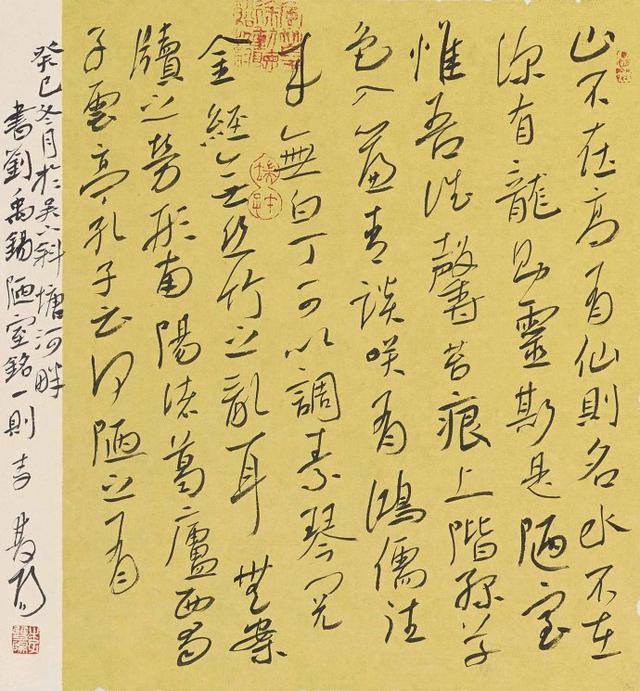 山不在高有仙則名水不在
深有龍則靈斯是陋室
惟吾德馨苔痕上階綠草
色入簾青談笑有鴻儒往
來無白丁可以調素琴閱
金經无絲竹之亂耳無案
牘之勞形南陽諸葛廬西蜀
子雲亭孔子云何陋之有
癸巳冬月於吳下斜塘河畔
書劉禹錫陋室銘一則